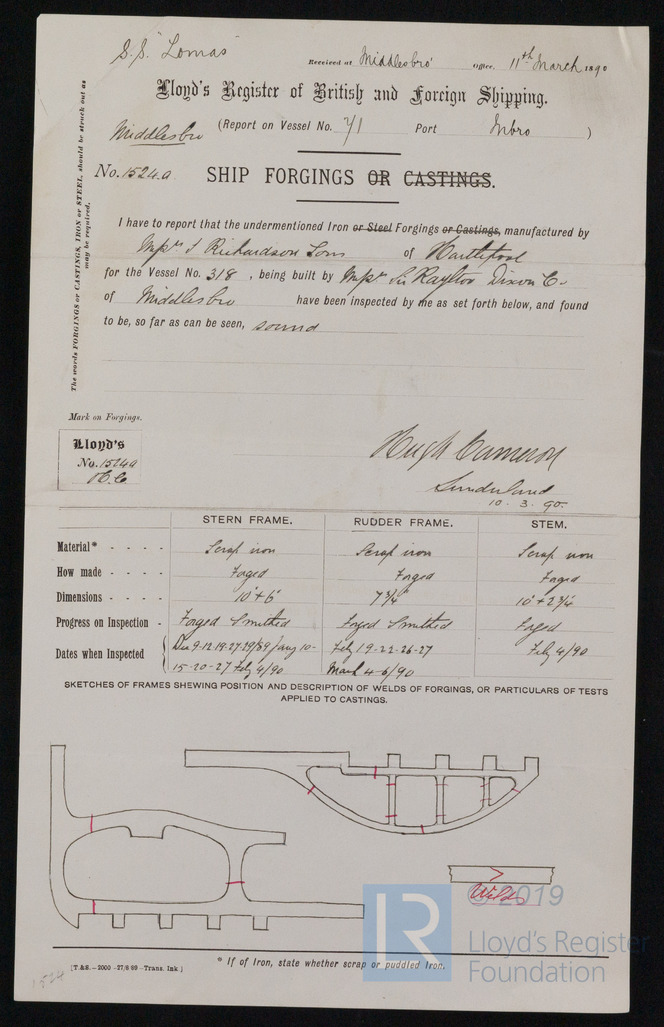 S.S. "Lomas"
Received at Middlesbro' Office, 11th March 1890
Lloyd's Register of British and Foreign Shipping.
Middlesbro (Report on Vessel No. 71 Port Mbro )
No. 1524a SHIP FORGINGS OR CASTINGS.
The words FORGINGS or CASTINGS, IRON or STEEL, should be struck out as
may be required.
I have to report that the undermentioned Iron or Steel Forgings or Castings, manufactured by
Richardson Sons of Hartlepool
for the Vessel No. 318 , being built by Raylton Dixon Co.
of Middlesbro have been inspected by me as set forth below, and found
to be, so far as can be seen, sound
Mark on Forgings.
Lloyd's
No. 1524a
H.C.
Hugh Cameron
Sunderland
10. 3. 90.
STERN FRAME. RUDDER FRAME. STEM.
Material* - - - - Scrap iron Scrap iron Scrap iron
How made - - - - Forged Forged Forged
Dimensions - - - - 10" + 6" 7¾" 10" + 2¾"
Progress on Inspection - Forged Smithed Forged Smithed Forged
Dates when Inspected Dec 9-12-19-27-29/89 10- Feby 19-22-26-27 Feby 4/90
15-20-27 Feby 4/90 March 4-6/90
SKETCHES OF FRAMES SHEWING POSITION AND DESCRIPTION OF WELDS OF FORGINGS, OR PARTICULARS OF TESTS
APPLIED TO CASTINGS.
Welds
© 2019
LR Lloyd's Register
Foundation
* If of Iron, state whether scrap or puddled Iron.
[T.&S.—2000 -27/8 89 -Trans. Ink]
1524